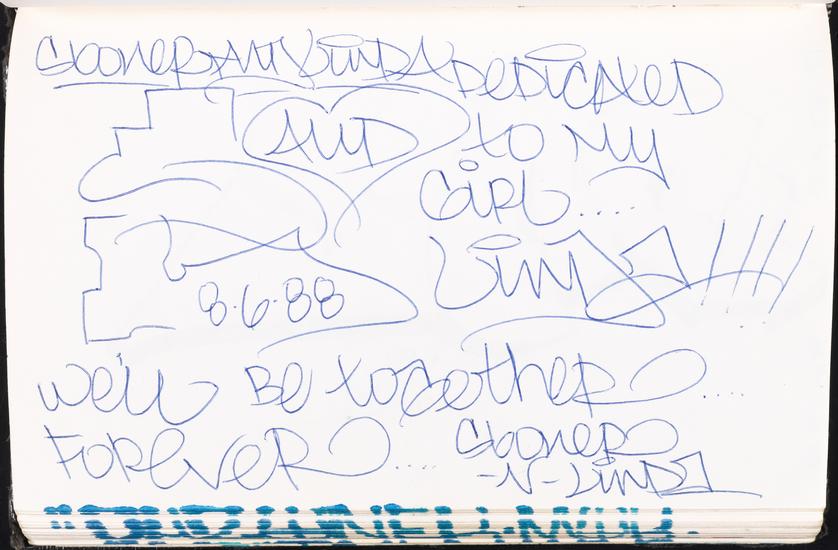 Sooner AND Linda DEDICATED
AND to my
GIRL....
Linda!!!!
8·6·88
we'll Be together....
FOREVER.... Sooner
-N- Linda